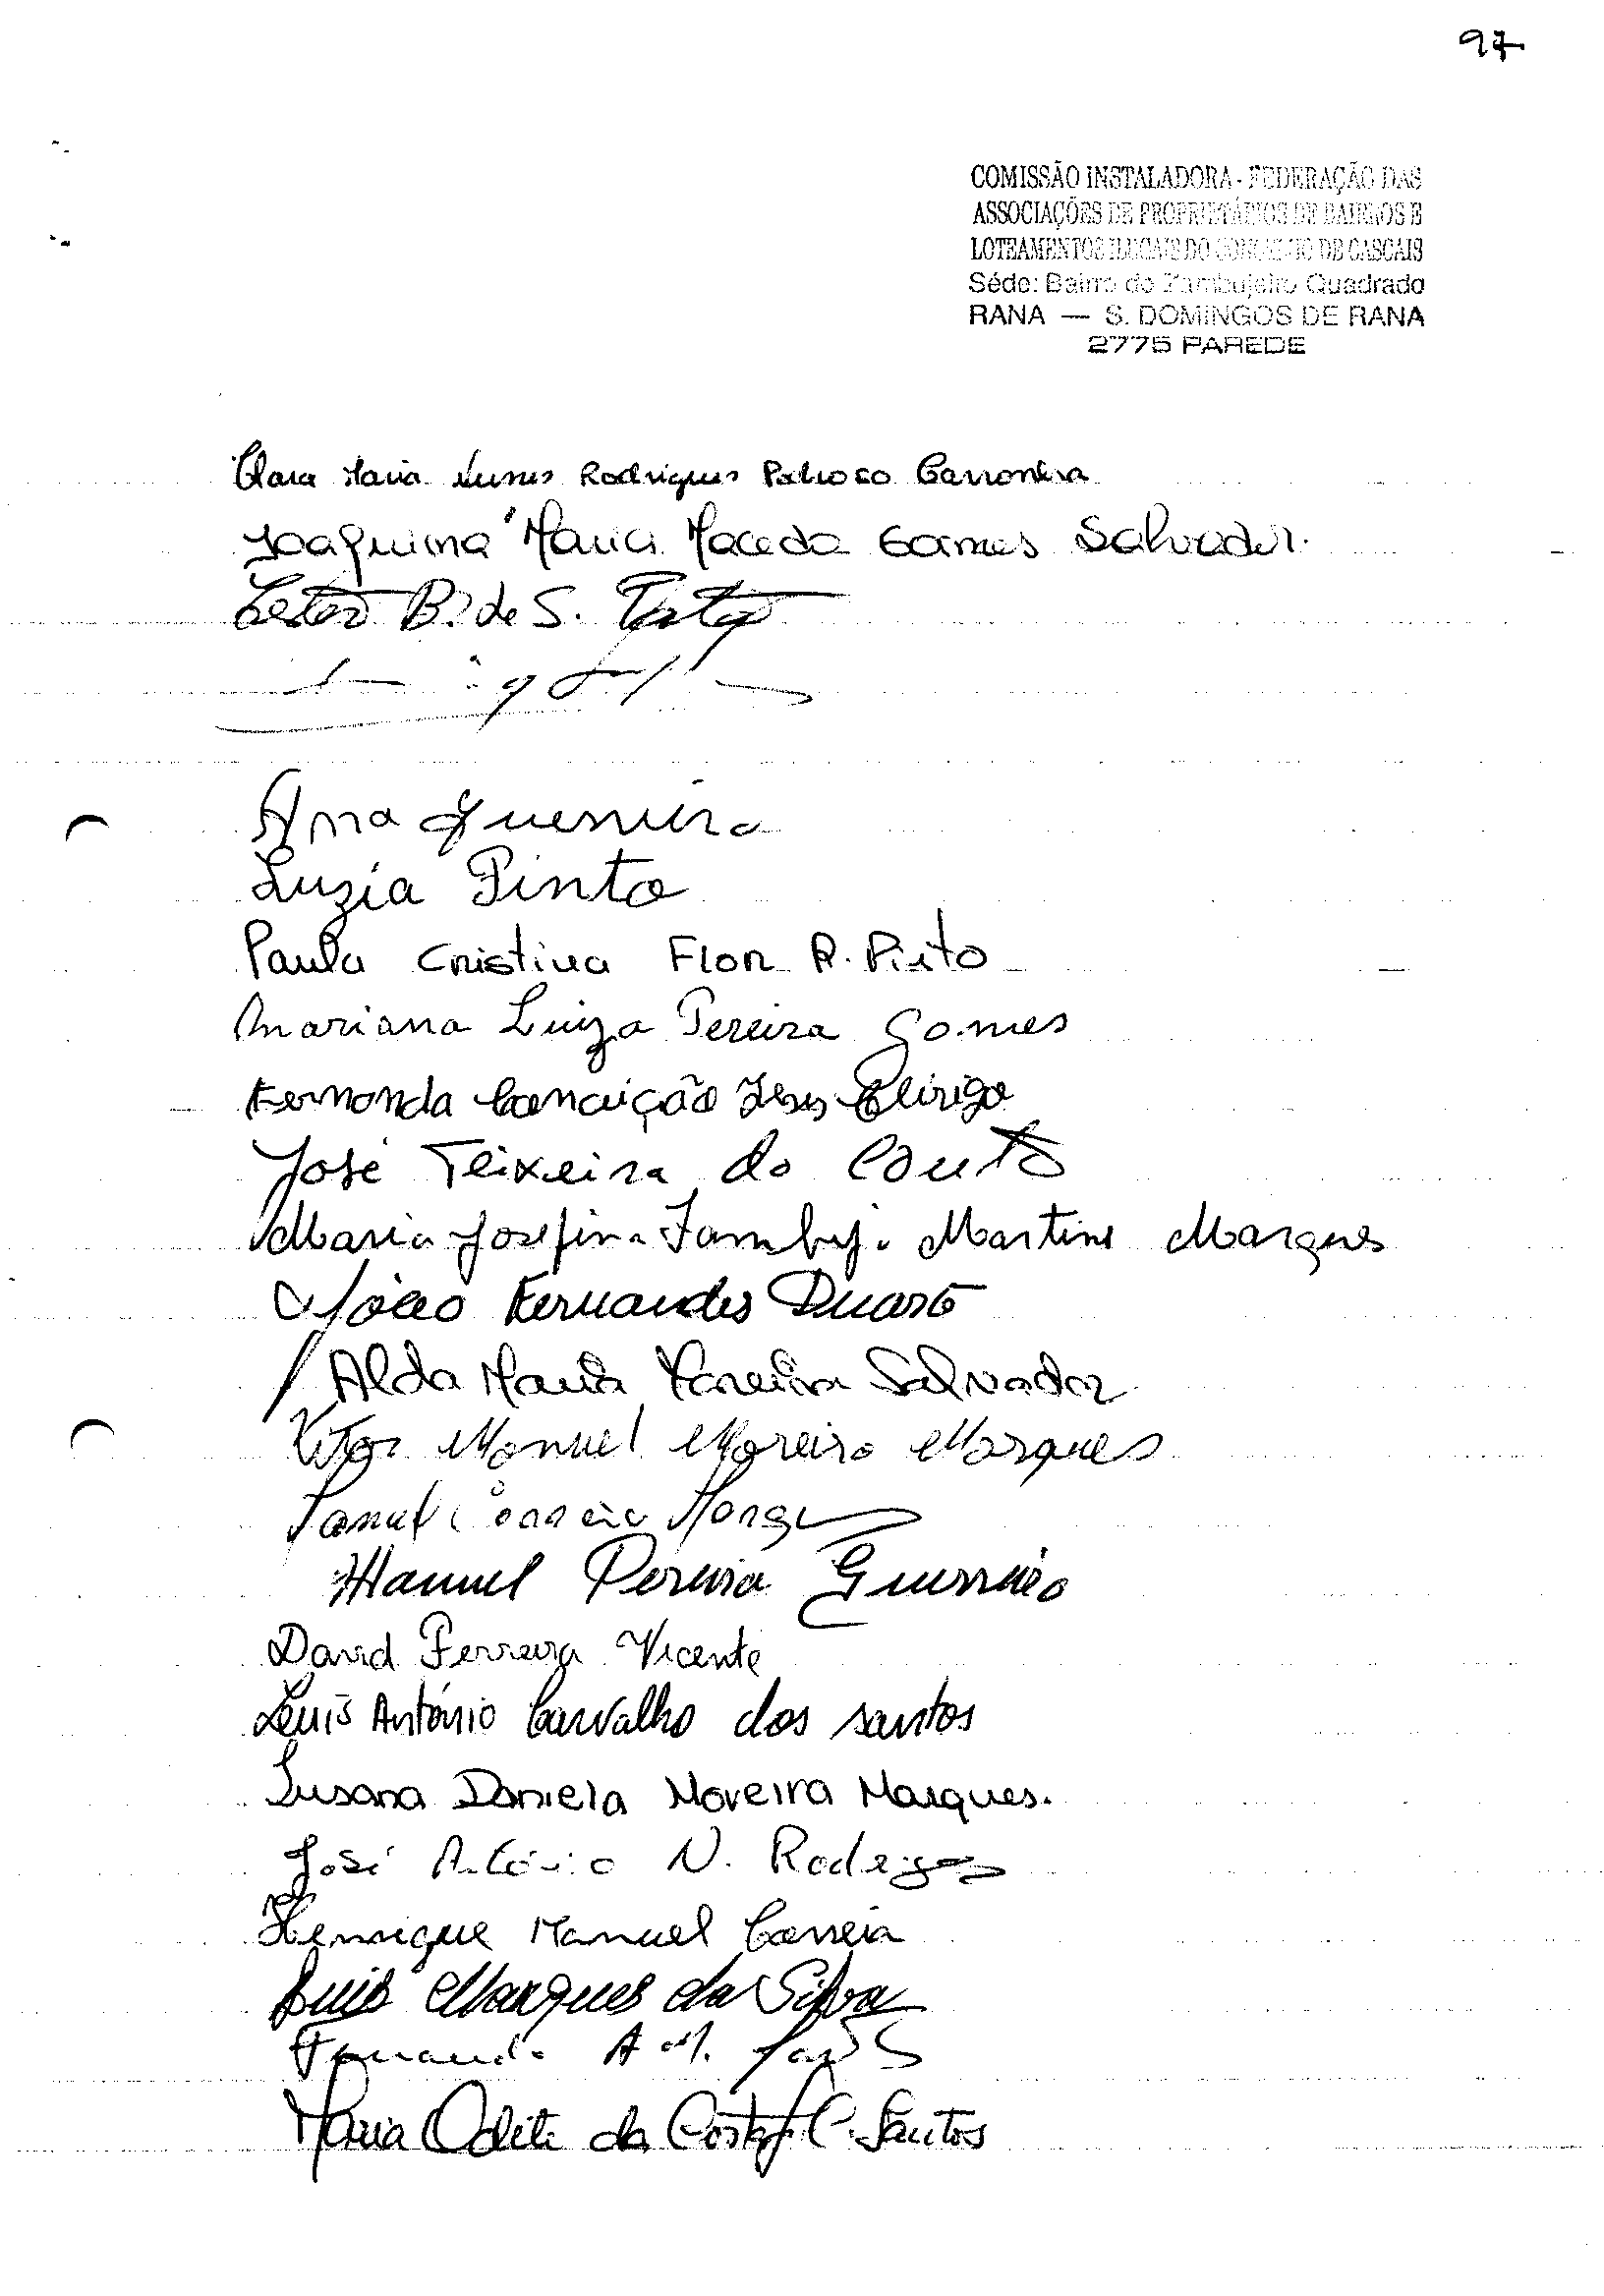 97
COMISSÃO INSTALADORA - FEDERAÇÃO DAS
ASSOCIAÇÕES DE PROPRIETÁRIOS DE BAIRROS E
LOTEAMENTOS ILEGAIS DO CONCELHO DE CASCAIS
Séde: Bairro do Zambujeiro Quadrado
RANA — S. DOMINGOS DE RANA
2775 PAREDE
Clara Maria Nunes Rodrigues Pedroso
Joaquima Maria Macedo Gomes Salvador.
B. de S.
Ana Guerreiro
Luzia Pinto
Paula Cristina Flor R. Pinto
Mariana Luiza Pereira Gomes
Fernanda Conceição Jesus
José Teixeira do Couto
Maria Josefina Martins Marques
João Fernandes Duarte
Alda Maria Moreira Salvador
Vitor Manuel Moreira Marques
Manuel Correia
Manuel Pereira Guerreiro
David Ferreira Vicente
Luis António Carvalho dos santos
Susana Daniela Moreira Marques.
José António N. Rodrigues
Henrique Manuel Correia
Luis Marques da Silva
Fernando A. M.
Maria Odete da Costa C. Santos